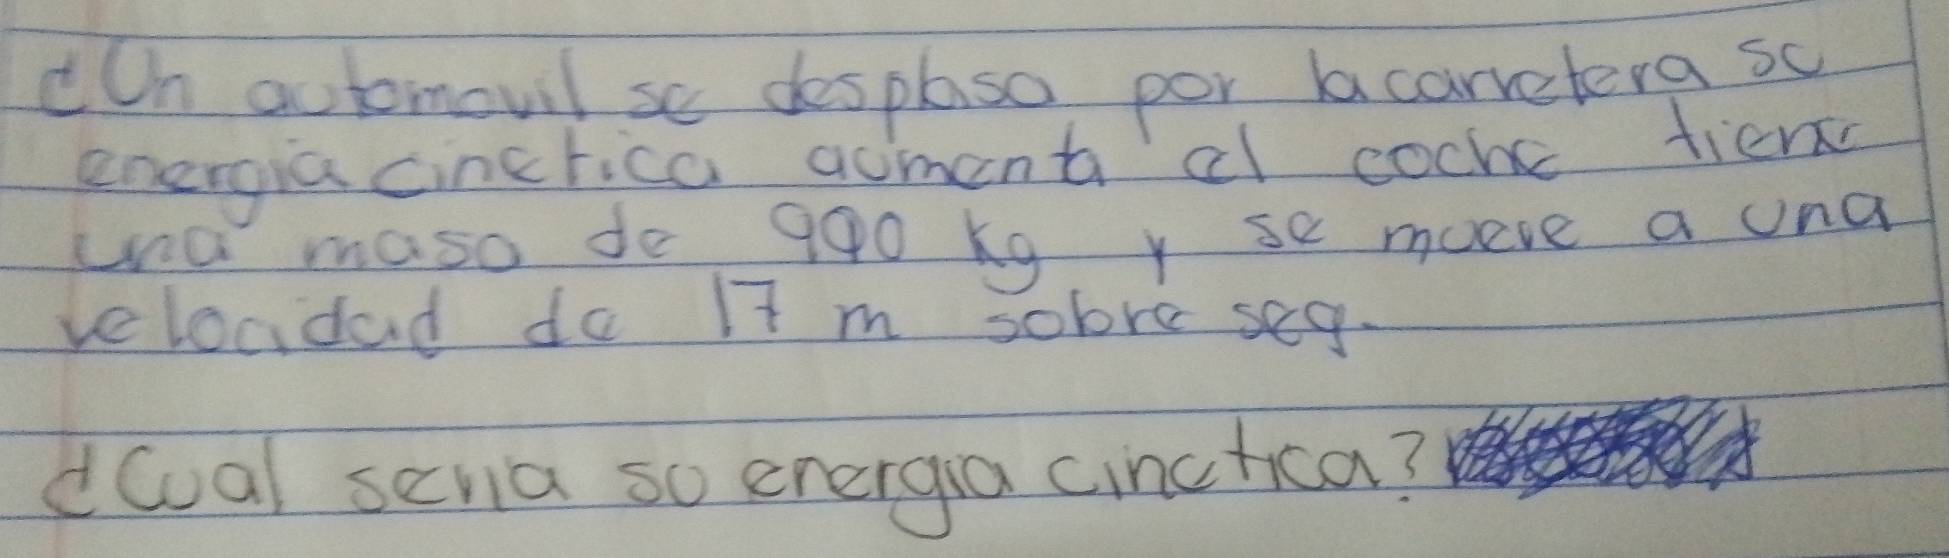 ¿Un automovil se desplasa por la carretera su
energia cinetica aumenta el coche tiene
una masa de 990 kg y se mueve a una
velocidad de 17 m sobre seg.
¿Cual seria su energia cinetica?